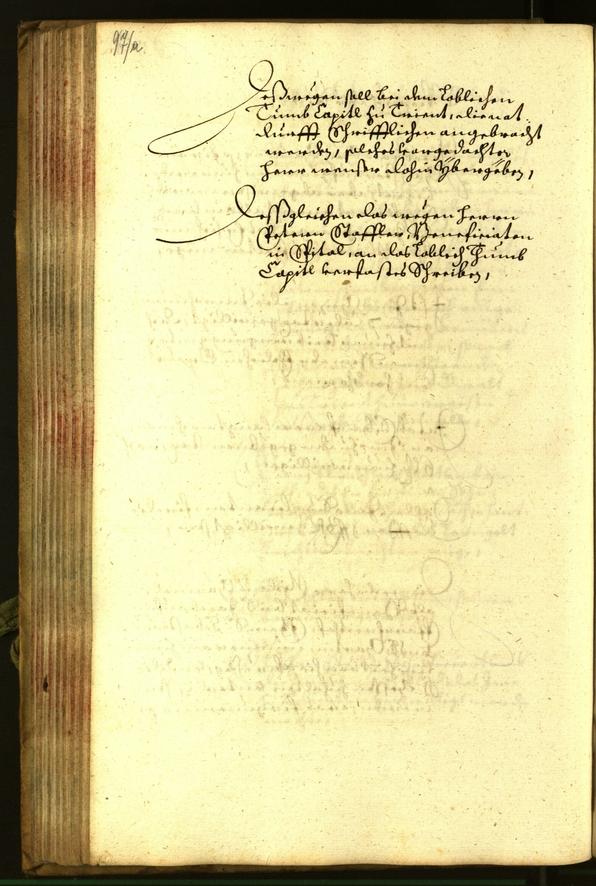 97/a
Deßwegen soll bei dem Loblichen
Tumb Capitl zu Trient, die notd.
durfft Schrifftlichen angebracht
werden, solches vorgedachter
herr dahin ybergeben,
Dessgleichen das wegen herrn
Petern Staffler Beneficiaten
in Spital, an das Loblich Thumb
Capitl verfastes Schreiben,